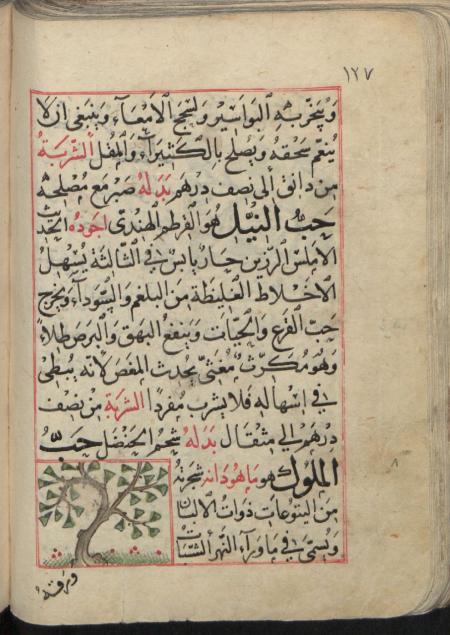 ١٢٧
ويتبخر به البواسير ولسحج الامعاء وينبغي ان لا
ينعم سحقه ويصلح بالكثيراء والمقل الشربة
من دانق الى نصف درهم بدله صبر مع مصلحه
حب النيل هو القرطم الهندي اجوده الحديث
الاملس الرزين حار يابس في الثالثة يسهل
الاخلاط الغليظة من البلغم والسوداء ويخرج
حب القرع والحيات وينفع البهق والبرص طلاء
وهو مكرث مغثي يحدث المغص لانه يبطي
في اسهاله فلا يشرب مفردا الشربة من نصف
درهم الى مثقال بدله شحم الحنضل حب
الملوك هو ماهودانه شجرته
من اليتوعات ذوات الالبان
ويسمى في ماوراء النهر
وورقه